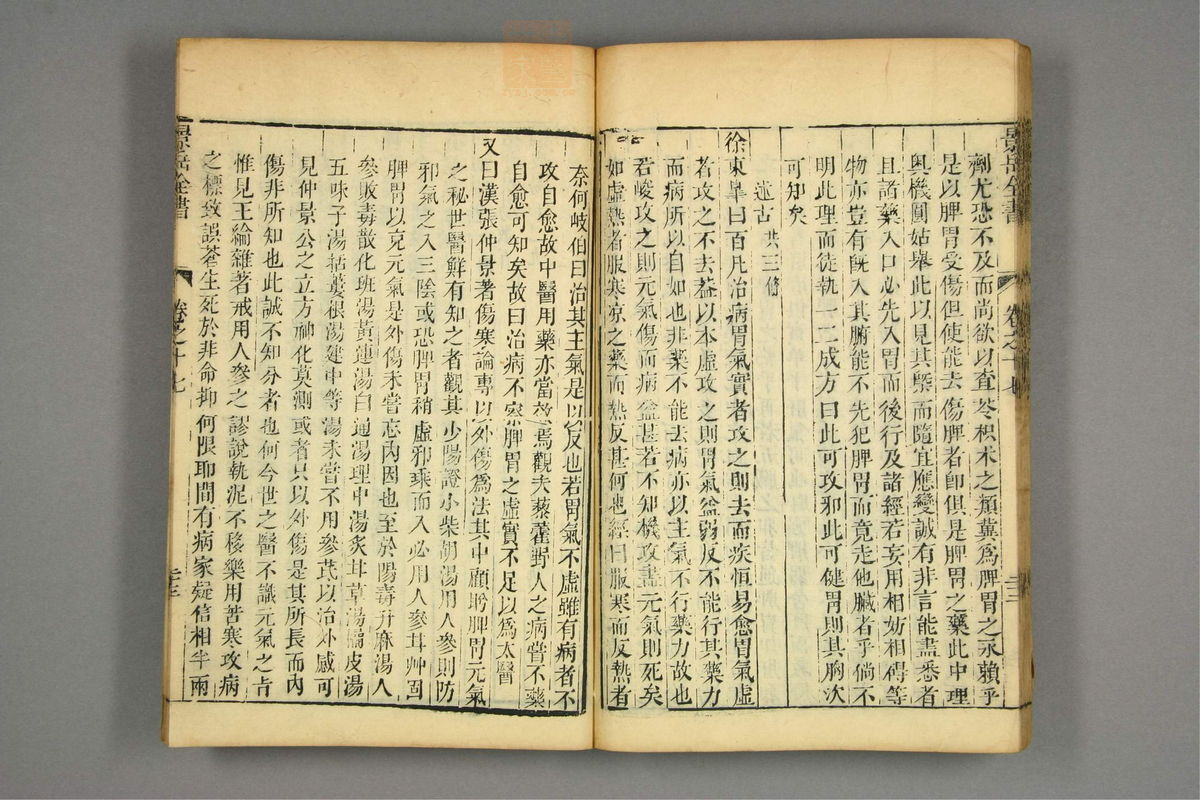 景岳全書 卷之十七
劑尤恐不及而尚欲以查苓枳朮之類冀爲脾胃之永賴乎
是以脾胃受傷但使能去傷脾者即俱是脾胃之藥此中理
奥機圓姑舉此以見其槩而隨宜應變誠有非言能盡悉者
且諸藥入口必先入胃而後行及諸經若妄用相妨相碍等
物亦豈有既入其腑能不先犯脾胃而竟走他臟者乎倘不
明此理而徒執一二成方曰此可攻邪此可健胃則其胸次
可知矣
述古 共三條
徐東皐曰百凡治病胃氣實者攻之則去而疾恒易愈胃氣虛
者攻之不去葢以本虛攻之則胃氣益弱反不能行其藥力
而病所以自如也非藥不能去病亦以主氣不行藥力故也
若峻攻之則元氣傷而病益甚若不知機攻盡元氣則死矣
如虛熱者服寒凉之藥而熱反甚何也經曰服寒而反熱者
奈何岐伯曰治其主氣是以反也若胃氣不虛雖有病者不
攻自愈故中醫用藥亦當效焉觀夫藜藿野人之病嘗不藥
自愈可知矣故曰治病不察脾胃之虛實不足以爲太醫
又曰漢張仲景著傷寒論專以外傷爲法其中顧盻脾胃元氣
之秘世醫鮮有知之者觀其少陽證小柴胡湯用人參則防
邪氣之入三陰或恐脾胃稍虛邪乘而入必用人參耳艸固
脾胃以克元氣是外傷未嘗忘内因也至於陽毒升麻湯人
參敗毒散化班湯黃連湯白通湯理中湯炙耳草湯橘皮湯
五味子湯栝蔞根湯建中等湯未嘗不用參芪以治外感可
見仲景公之立方神化莫測或者只以外傷是其所長而内
傷非所知也此誠不知分者也何今世之醫不識元氣之旨
惟見王綸雜著戒用人參之謬說執泥不移樂用苦寒攻病
之標致誤蒼生死於非命抑何限耶間有病家疑信相半兩
景岳全書 卷之十七